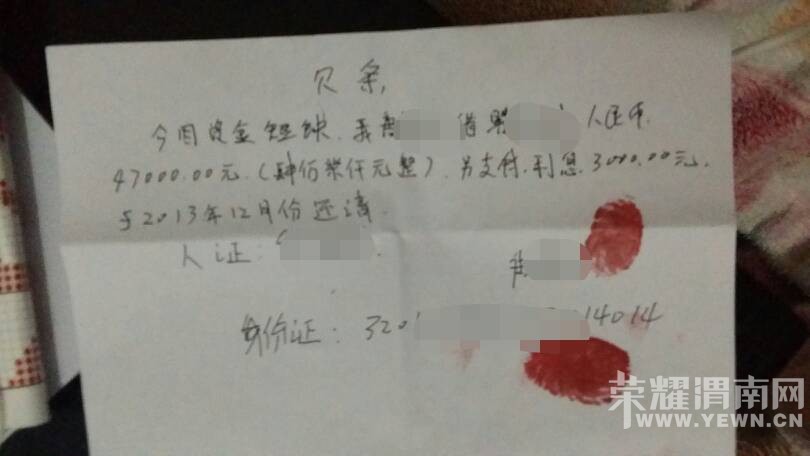 欠条,
今因资金短缺,我 借 人民币
47000.00元(肆佰柒仟元整)另支付利息3000.00元,
于2013年12月份还清.
人证:
身份证: 320 14014
荣耀渭南网
WWW.YEWN.CN